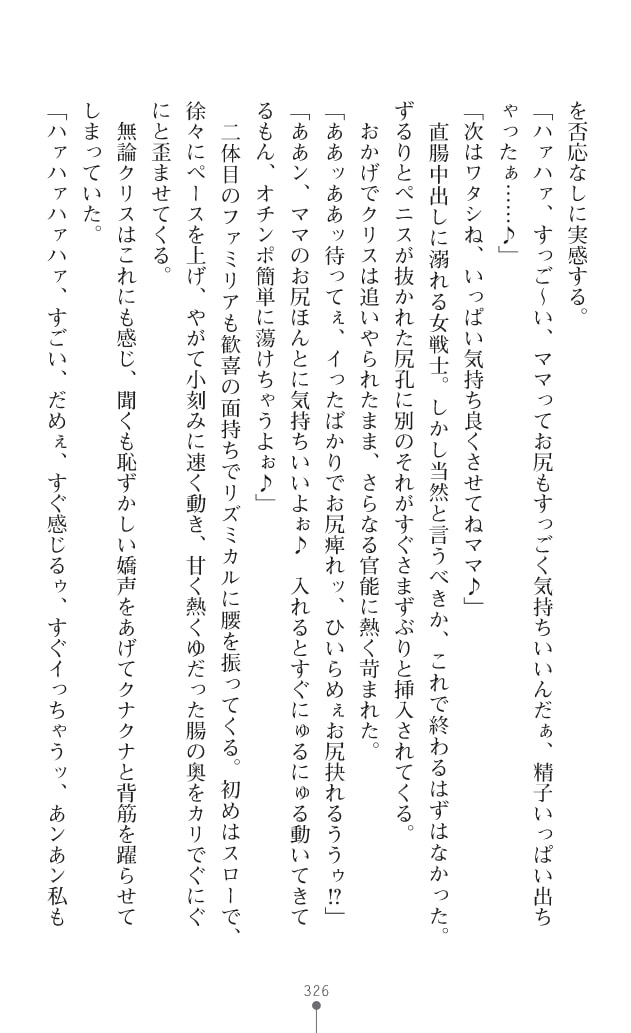 を否応なしに実感する。
「ハァハァ、すっご〜い、ママってお尻もすっごく気持ちいいんだぁ、精子いっぱい出ち
ゃったぁ……♪」
「次はワタシね、いっぱい気持ち良くさせてねママ♪」
　直腸中出しに溺れる女戦士。しかし当然と言うべきか、これで終わるはずはなかった。
ずるりとペニスが抜かれた尻孔に別のそれがすぐさまずぶりと挿入されてくる。
　おかげでクリスは追いやられたまま、さらなる官能に熱く苛まれた。
「ああッああッ待ってぇ、イったばかりでお尻痺れッ、ひいらめぇお尻抉れるううゥ!?」
「ああン、ママのお尻ほんとに気持ちいいよぉ♪　入れるとすぐにゅるにゅる動いてきて
るもん、オチンポ簡単に蕩けちゃうよぉ♪」
　二体目のファミリアも歓喜の面持ちでリズミカルに腰を振ってくる。初めはスローで、
徐々にペースを上げ、やがて小刻みに速く動き、甘く熱くゆだった腸の奥をカリでぐにぐ
にと歪ませてくる。
　無論クリスはこれにも感じ、聞くも恥ずかしい嬌声をあげてクナクナと背筋を躍らせて
しまっていた。
「ハァハァハァハァ、すごい、だめぇ、すぐ感じるゥ、すぐイっちゃうッ、あンあン私も
326